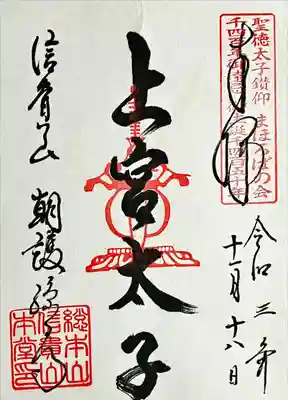 聖徳太子鑽仰 まほろばの会
奉拝
令和三年
十一月十八日
上宮太子
信貴山 朝護孫子寺
総本山
信貴山
本堂印